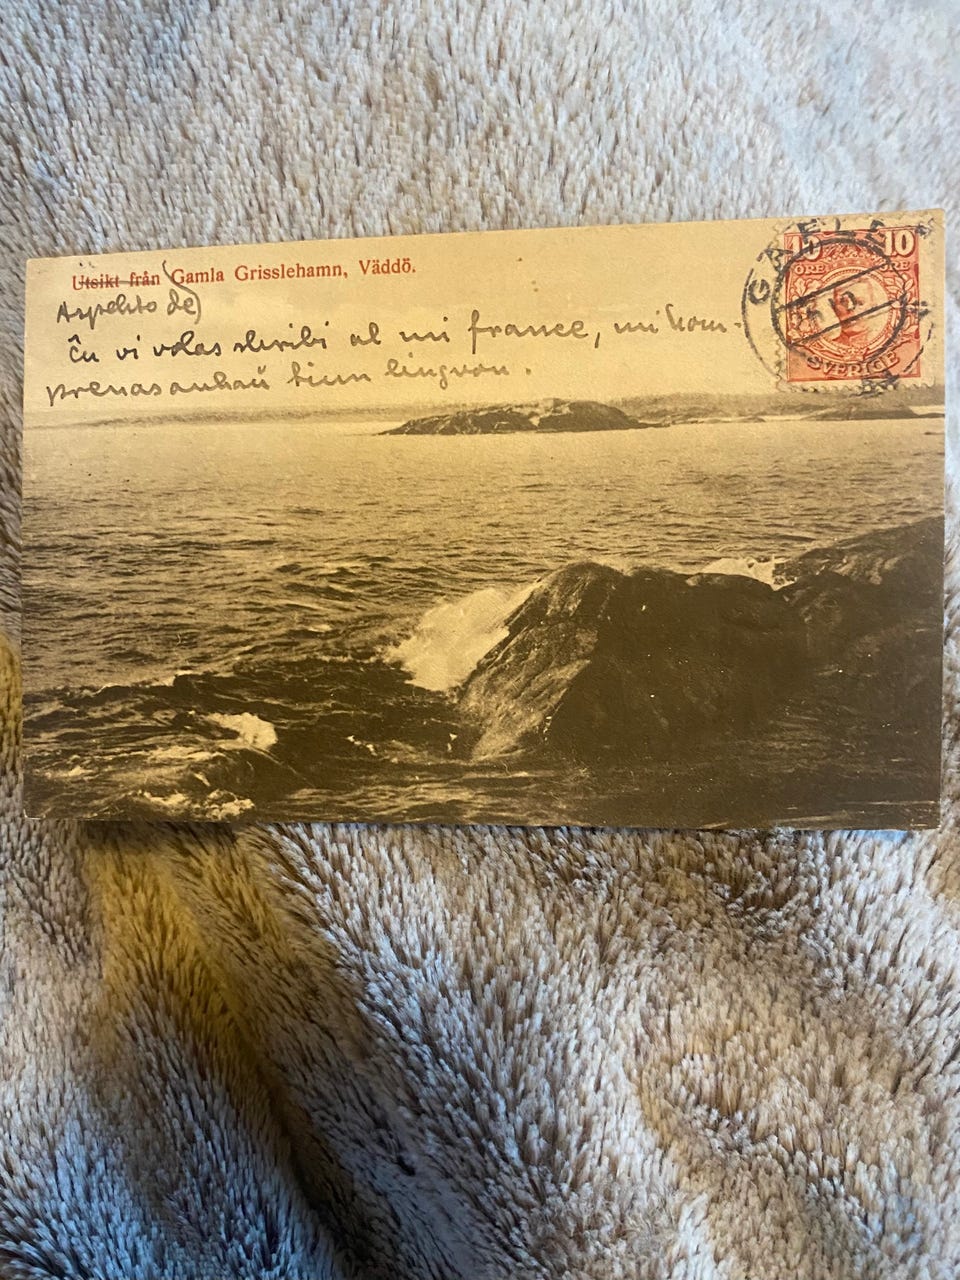 Utsikt från Gamla Grisslehamn, Väddö.
Aspekto de
Ĉu vi volas skribi al mi france, mi kom-
prenas ankaŭ tiun lingvon.
GAEFLE
10 10
ÖRE ÖRE
SVERIGE